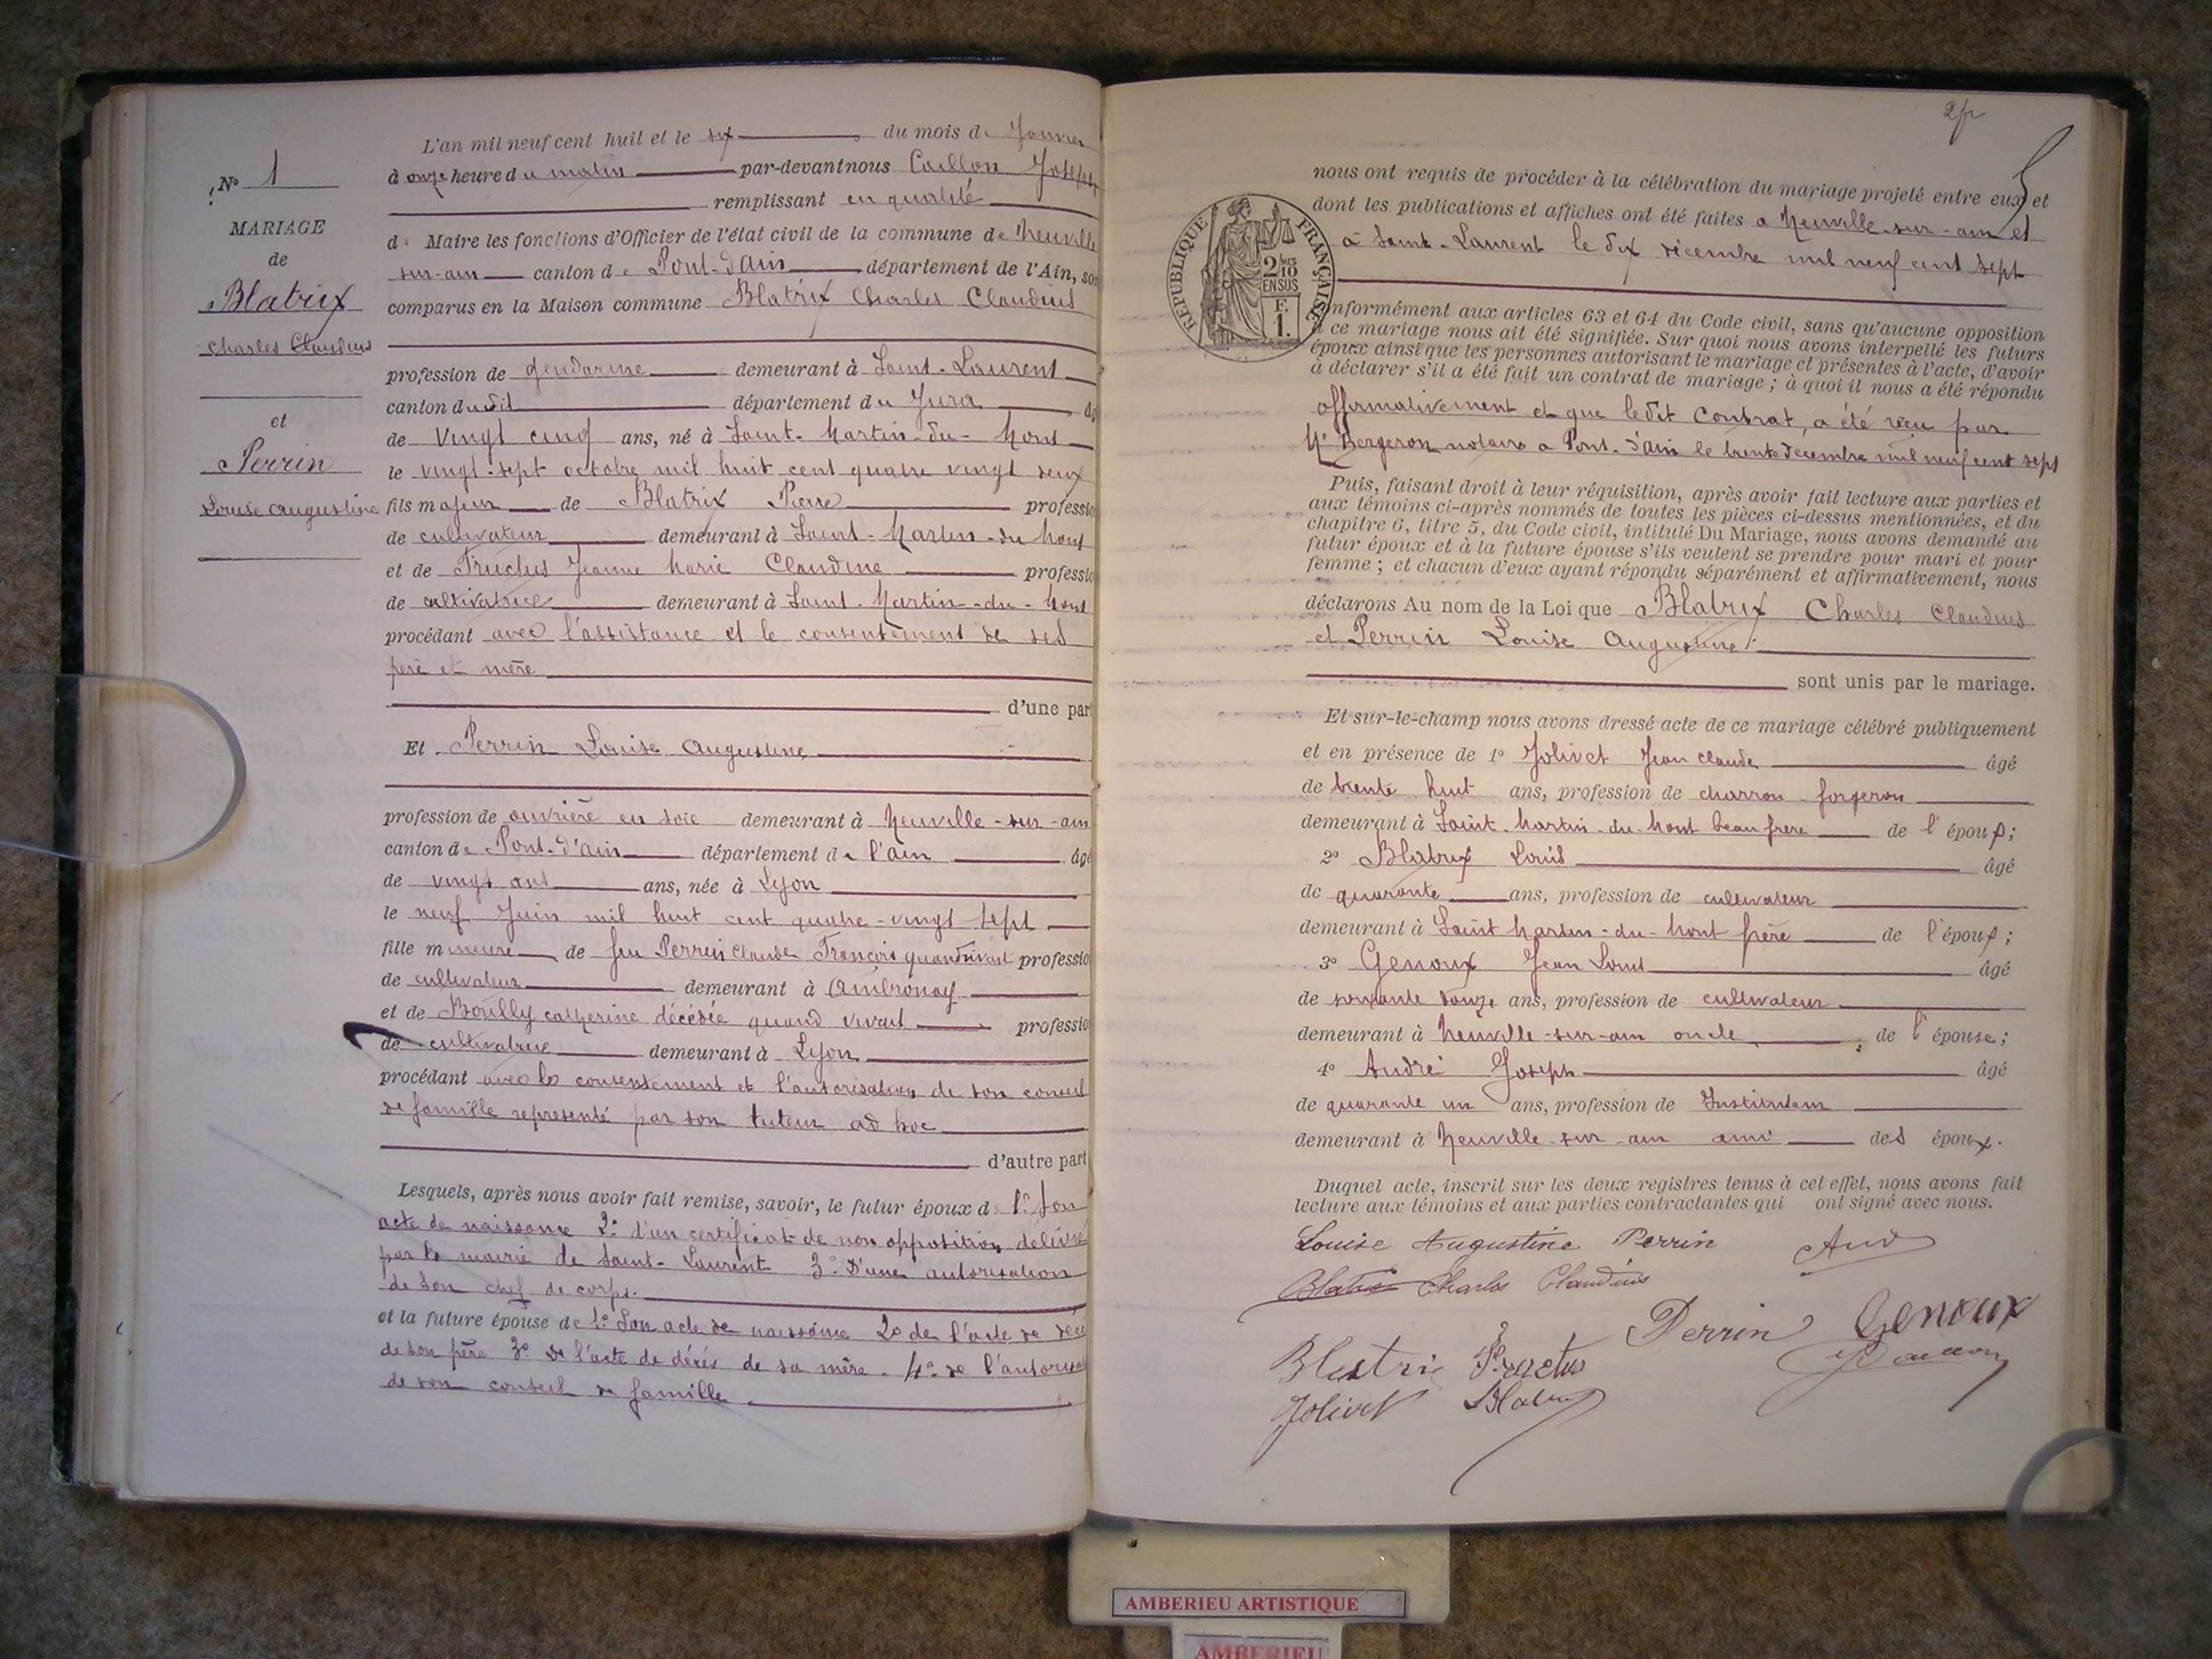 L'an mil neuf cent huit et le six du mois de Janvier
N° 1
à onze heure du matin par-devant nous Caillon Joseph
remplissant en qualité
MARIAGE
de
Blatrix
Charles Claudius
et
Perrin
Louise Augustine
de Maire les fonctions d'Officier de l'état civil de la commune de Neuville
sur-ain canton de Pont-d'Ain département de l'Ain, son
comparus en la Maison commune Blatrix Charles Claudius
profession de gendarme demeurant à Saint-Laurent
canton dudit département du Jura
de vingt cinq ans, né à Saint-Martin-du-Mont
le vingt-sept octobre mil huit cent quatre vingt deux
fils majeur de Blatrix Pierre professio
de cultivateur demeurant à Saint-Martin-du Mont
et de Truchus Jeanne Marie Claudine professio
de cultivatrice demeurant à Saint-Martin-du-Mont
procédant avec l'assistance et le consentement de ses
père et mère
d'une part
Et Perrin Louise Augustine
profession de ouvrière en soie demeurant à Neuville-sur-ain
canton de Pont-d'Ain département de l'ain âgé
de vingt ans ans, née à Lyon
le neuf Juin mil huit cent quatre-vingt sept
fille mineure de feu Perrin Claude François quand vivait professio
de cultivateur demeurant à Ambronay
et de Bouilly catherine décédée quand vivait professio
de cultivatrice demeurant à Lyon
procédant avec le consentement et l'autorisation de son conseil
de famille representé par son tuteur ad hoc
d'autre part
Lesquels, après nous avoir fait remise, savoir, le futur époux de 1° Son
acte de naissance 2° d'un certificat de non opposition délivré
par la mairie de Saint-Laurent 3° D'une autorisation
de son chef de corps.
et la future épouse de 1° Son acte de naissance 2° de l'acte de déc
de son père 3° de l'acte de décés de sa mère. 4° de l'autorisa
de son conseil de famille
nous ont requis de procéder à la célébration du mariage projeté entre eux et
dont les publications et affiches ont été faites a Neuville-sur-ain et
à Saint-Laurent le dix décembre mil neuf cent sept
RÉPUBLIQUE FRANÇAISE
2/10
EN SUS
F.
1.
conformément aux articles 63 et 64 du Code civil, sans qu'aucune opposition
à ce mariage nous ait été signifiée. Sur quoi nous avons interpellé les futurs
époux ainsi que les personnes autorisant le mariage et présentes à l'acte, d'avoir
à déclarer s'il a été fait un contrat de mariage ; à quoi il nous a été répondu
affirmativement et que ledit contrat, a été reçu par
Me Bergeron notaire a Pont-d'ain le trente Decembre mil neuf cent sept
Puis, faisant droit à leur réquisition, après avoir fait lecture aux parties et
aux témoins ci-après nommés de toutes les pièces ci-dessus mentionnées, et du
chapitre 6, titre 5, du Code civil, intitulé Du Mariage, nous avons demandé au
futur époux et à la future épouse s'ils veulent se prendre pour mari et pour
femme ; et chacun d'eux ayant répondu séparément et affirmativement, nous
déclarons Au nom de la Loi que Blatrix Charles Claudius
et Perrin Louise Augustine
sont unis par le mariage.
Et sur-le-champ nous avons dressé acte de ce mariage célébré publiquement
et en présence de 1° Jolivet Jean Claude âgé
de trente huit ans, profession de charron forgeron
demeurant à Saint-Martin-du-Mont beau frere de l'époux ;
2° Blatrix Louis âgé
de quarante ans, profession de cultivateur
demeurant à Saint Martin-du-Mont frère de l'époux ;
3° Genoux Jean Louis âgé
de soixante douze ans, profession de cultivateur
demeurant à Neuville-sur-ain oncle de l'épouse ;
4° André Joseph âgé
de quarante un ans, profession de Instituteur
demeurant à Neuville-sur-ain ami des époux.
Duquel acte, inscrit sur les deux registres tenus à cet effet, nous avons fait
lecture aux témoins et aux parties contractantes qui ont signé avec nous.
Louise Augustine Perrin
Blatrix Charles Claudius
Perrin Genoux
Jolivet
AMBERIEU ARTISTIQUE
AMBERIEU